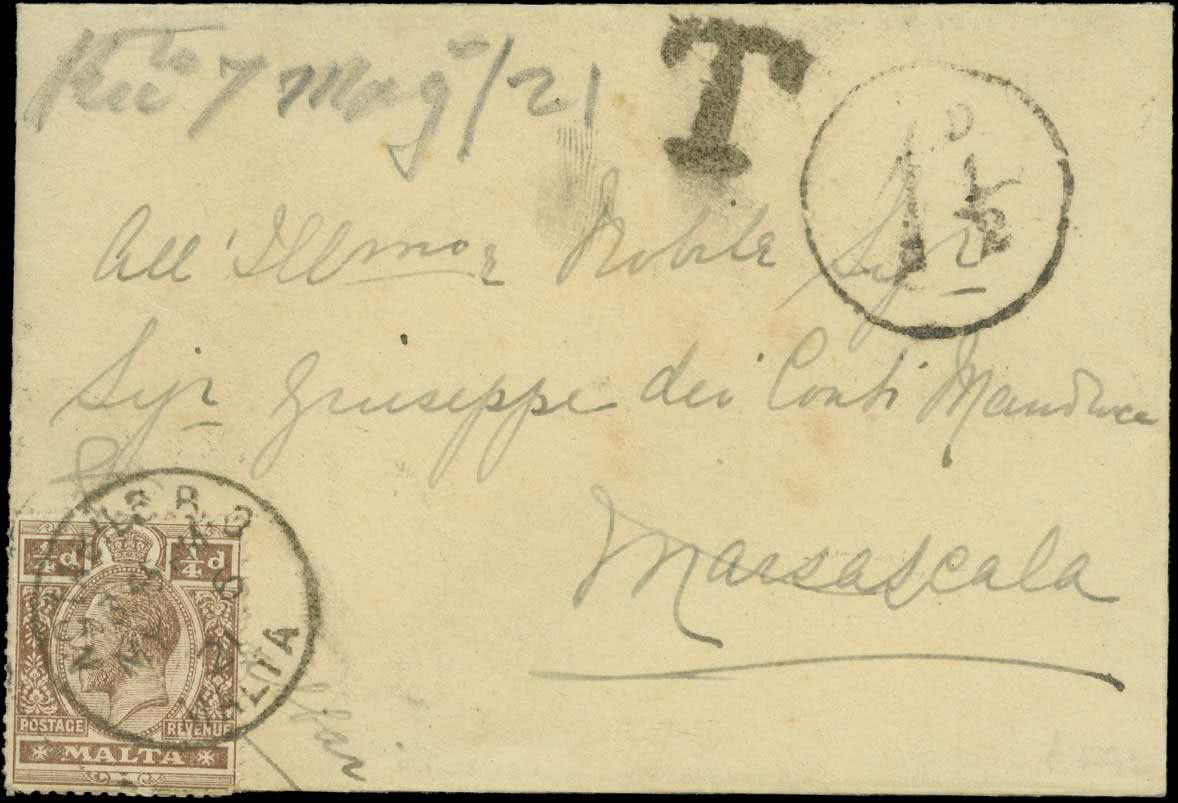 7 Mag /21
T
1 D ½
All' Illmo e Nobile Sigr
Sigr Giuseppe dei Conti Manduca
Marsascala
¼d ¼d
MALTA
POSTAGE REVENUE
MALTA